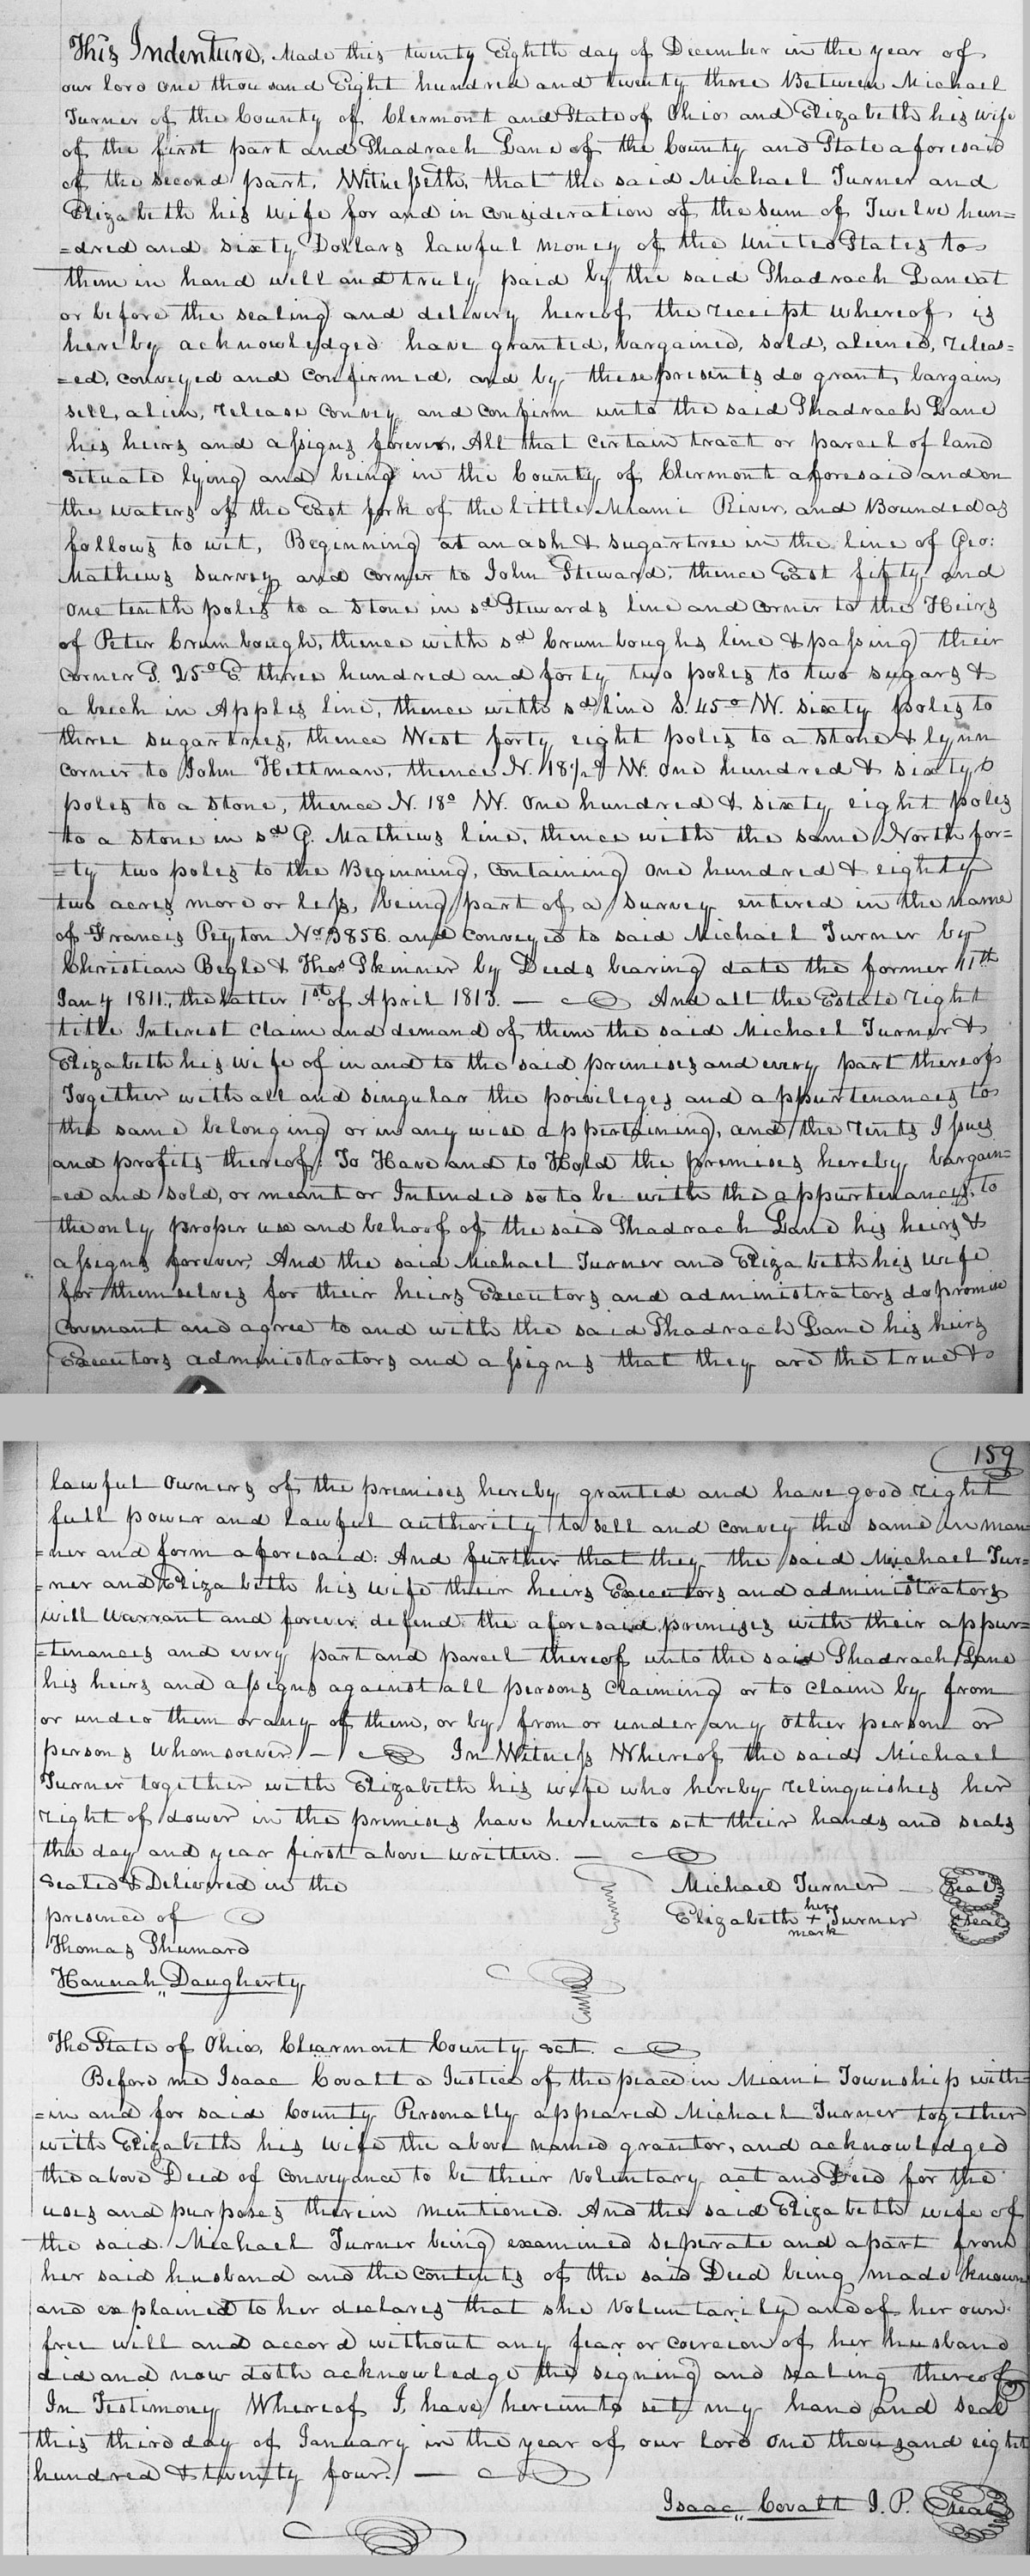 This Indenture, Made this twenty Eighth day of December in the year of
our lord one thousand Eight hundred and twenty three Between Michael
Turner of the County of Clermont and State of Ohio and Elizabeth his wife
of the first part and Shadrach Lane of the County and State aforesaid
of the second part. Witnesseth, that the said Michael Turner and
Elizabeth his wife for and in consideration of the sum of Twelve hun=
=dred and sixty Dollars lawful money of the United States to
them in hand well and truly paid by the said Shadrach Lane at
or before the sealing and delivery hereof the receipt whereof is
hereby acknowledged have granted, bargained, sold, aliened, releas=
=ed, conveyed and confirmed, and by these presents do grant, bargain,
sell, alien, release convey and confirm unto the said Shadrach Lane
his heirs and assigns forever, All that certain tract or parcel of land
situate lying and being in the County of Clermont aforesaid and on
the waters of the East fork of the little Miami River, and Bounded as
follows to wit, Beginning at an ash & sugartree in the line of Geo:
Mathews survey and corner to John Steward; thence East fifty and
one tenth poles to a stone in sd Stewards line and corner to the Heirs
of Peter Crumbough, thence with sd Crumboughs line & passing their
corner S. 25° E. three hundred and forty two poles to two sugars &
a beech in Apples line, thence with sd line S. 45° W. sixty poles to
three sugartrees, thence West forty eight poles to a stone & lynn
corner to John Hettman, thence N. 18½° W. one hundred & sixty
poles to a stone, thence N. 18° W. one hundred & sixty eight poles
to a stone in sd G. Mathews line, thence with the same North for=
=ty two poles to the Beginning, containing one hundred & eighty
two acres more or less, being part of a survey entered in the name
of Francis Peyton No 3856. and conveyed to said Michael Turner by
Christian Begle & Thos Skinner by Deeds bearing date the former 11th
Jany 1811, the latter 1st of April 1813. — And all the Estate right
title Interest claim and demand of them the said Michael Turner &
Elizabeth his wife of in and to the said premises and every part thereof
Together with all and singular the privileges and appurtenances to
the same belonging or in any wise appertaining, and the rents Issues
and profits thereof: To Have and to Hold the premises hereby bargain=
=ed and sold, or meant or Intended so to be with the appurtenances, to
the only proper use and behoof of the said Shadrach Lane his heirs &
assigns forever, And the said Michael Turner and Elizabeth his wife
for themselves for their heirs Executors and administrators do promise
covenant and agree to and with the said Shadrach Lane his heirs
Executors administrators and assigns that they are the true &
159
lawful owners of the premises hereby granted and have good right
full power and lawful authority to sell and convey the same in man=
=ner and form aforesaid: And further that they the said Michael Tur=
=ner and Elizabeth his wife their heirs Executors and administrators
will warrant and forever defend the aforesaid premises with their appur=
=tenances and every part and parcel thereof unto the said Shadrach Lane
his heirs and assigns against all persons claiming or to claim by from
or under them or any of them, or by from or under any other person or
persons whomsoever. — In Witness Whereof the said Michael
Turner together with Elizabeth his wife who hereby relinquishes her
right of dower in the premises have hereunto set their hands and seals
the day and year first above written. —
Sealed & Delivered in the Michael Turner Seal
presence of Elizabeth her + mark Turner Seal
Thomas Shumard
Hannah Daugherty
The State of Ohio, Clearmont County sct.
Before me Isaac Covalt a Justice of the peace in Miami Township with=
=in and for said County Personally appeared Michael Turner together
with Elizabeth his wife the above named grantor, and acknowledged
the above Deed of conveyance to be their voluntary act and Deed for the
uses and purposes therein mentioned. And the said Elizabeth wife of
the said Michael Turner being examined seperate and apart from
her said husband and the contents of the said Deed being made known
and explained to her declares that she voluntarily and of her own
free will and accord without any fear or coercion of her husband
did and now doth acknowledge the signing and sealing thereof
In Testimony Whereof I, have hereunto set my hand and seal
this third day of January in the year of our lord one thousand eight
hundred & twenty four. —
Isaac Covalt J. P. Seal